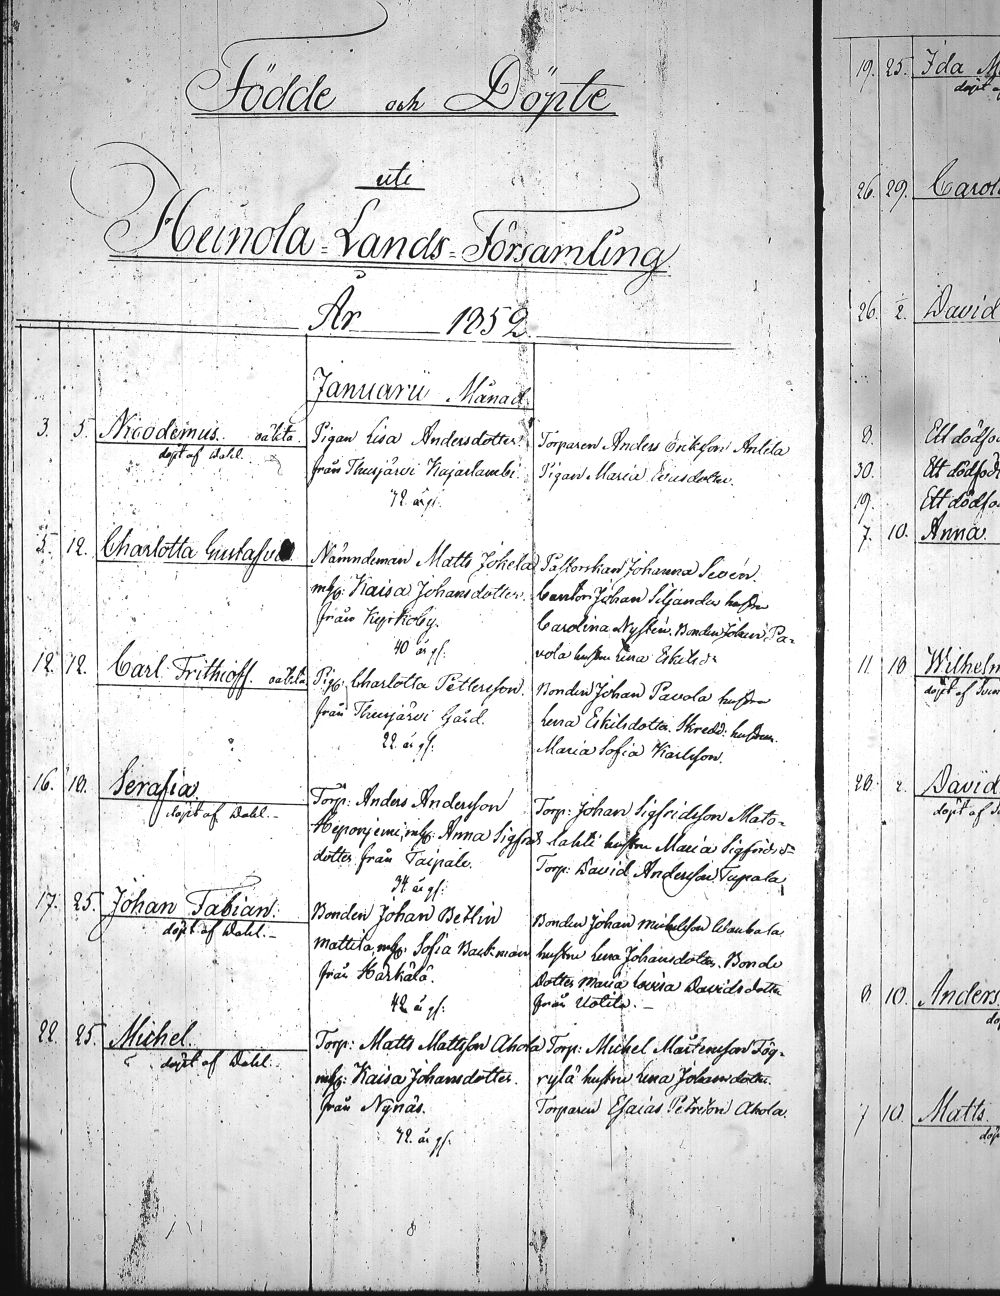 Födde och Döpte
uti
Heinola-Lands-Församling
År 1852
Januarii Månad
3. 5. Nicodemus. oäkta.
döpt af Dahl.
Pigan Lisa Andersdotter
från Thusjärvi Kajaslambi
42 år gl.
Torparen Anders Eriksson Anttila
Pigan Maria Evasdotter.
5. 12. Charlotta Gustafva
Nämndeman Matts Jokela
mh: Kaisa Johansdotter.
från Kyrkoby.
40 år gl.
Pastorskan Johanna Sevén.
Cantor Johan Siljander hustru
Carolina Nystén. Bonden Johan Pa-
vola hustru Lena Eskilsd:
12. 12. Carl Frithioff. oäkta
Pig: Charlotta Pettersson.
från Thusjärvi Gård.
22 år gl.
Bonden Johan Pavola hustru
Lena Eskilsdotter. Skredd: hustrun
Maria Sofia Karlsson.
16. 18. Serafia
döpt af Dahl.-
Torp: Anders Andersson
Heponjemi, mh: Anna Sigfrids
dotter från Taipale.
34 år gl:
Torp: Johan Sigfridsson Mato-
lahti hustru Maria Sigfridsd-
Torp: David Andersson Tupala
17. 25. Johan Fabian.
döpt af Dahl.-
Bonden Johan Betlin
Mattila, mh: Sofia Backman
från Härkälä.
42 år gl:
Bonden Johan Michelsson
hustru Lena Johansdotter. Bonde
Dotter Maria Lovisa Davidsdotter
från Uotila.-
22. 25. Michel.
döpt af Dahl.
Torp: Matts Mattsson Ahola
mh: Kaisa Johansdotter.
från Nynäs.
42 år gl.
Torp: Michel Mårtensson Tög-
rylä hustru Lena Johansdotter
Torparen Esaias Petterson Ahola.
8
19. 25. Ida M
döpt af
26. 29. Carol
26. 1/2. David
8. Ett dödfö
30. Ett dödföd
19. Ett dödfö
7. 10. Anna
11. 18 Wilhelm
döpt af
20. 2. David
döpt af
8. 10. Anders
dö
7 10. Matts
döp